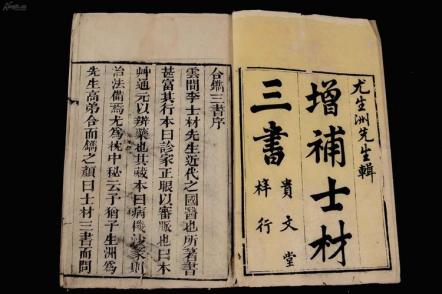 尤生洲先生輯
增補士材
三書
貴文堂
梓行
合鐫三書序
雲間李士材先生近代之國醫也所著書
甚富其行本曰診家正眼以審脈也曰本
艸通元以辨藥也其藏本曰病機沙篆則
治法備焉尤為枕中秘云予猶子生洲為
先生高弟合而鐫之顏曰士材三書而問